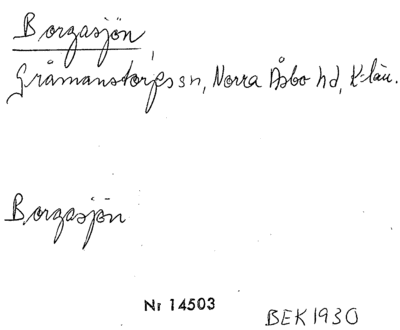 Borgasjön
Gråmanstorps sn, Norra Åsbo hd, K-län.
Borgasjön
Nr 14503
BEK 1930